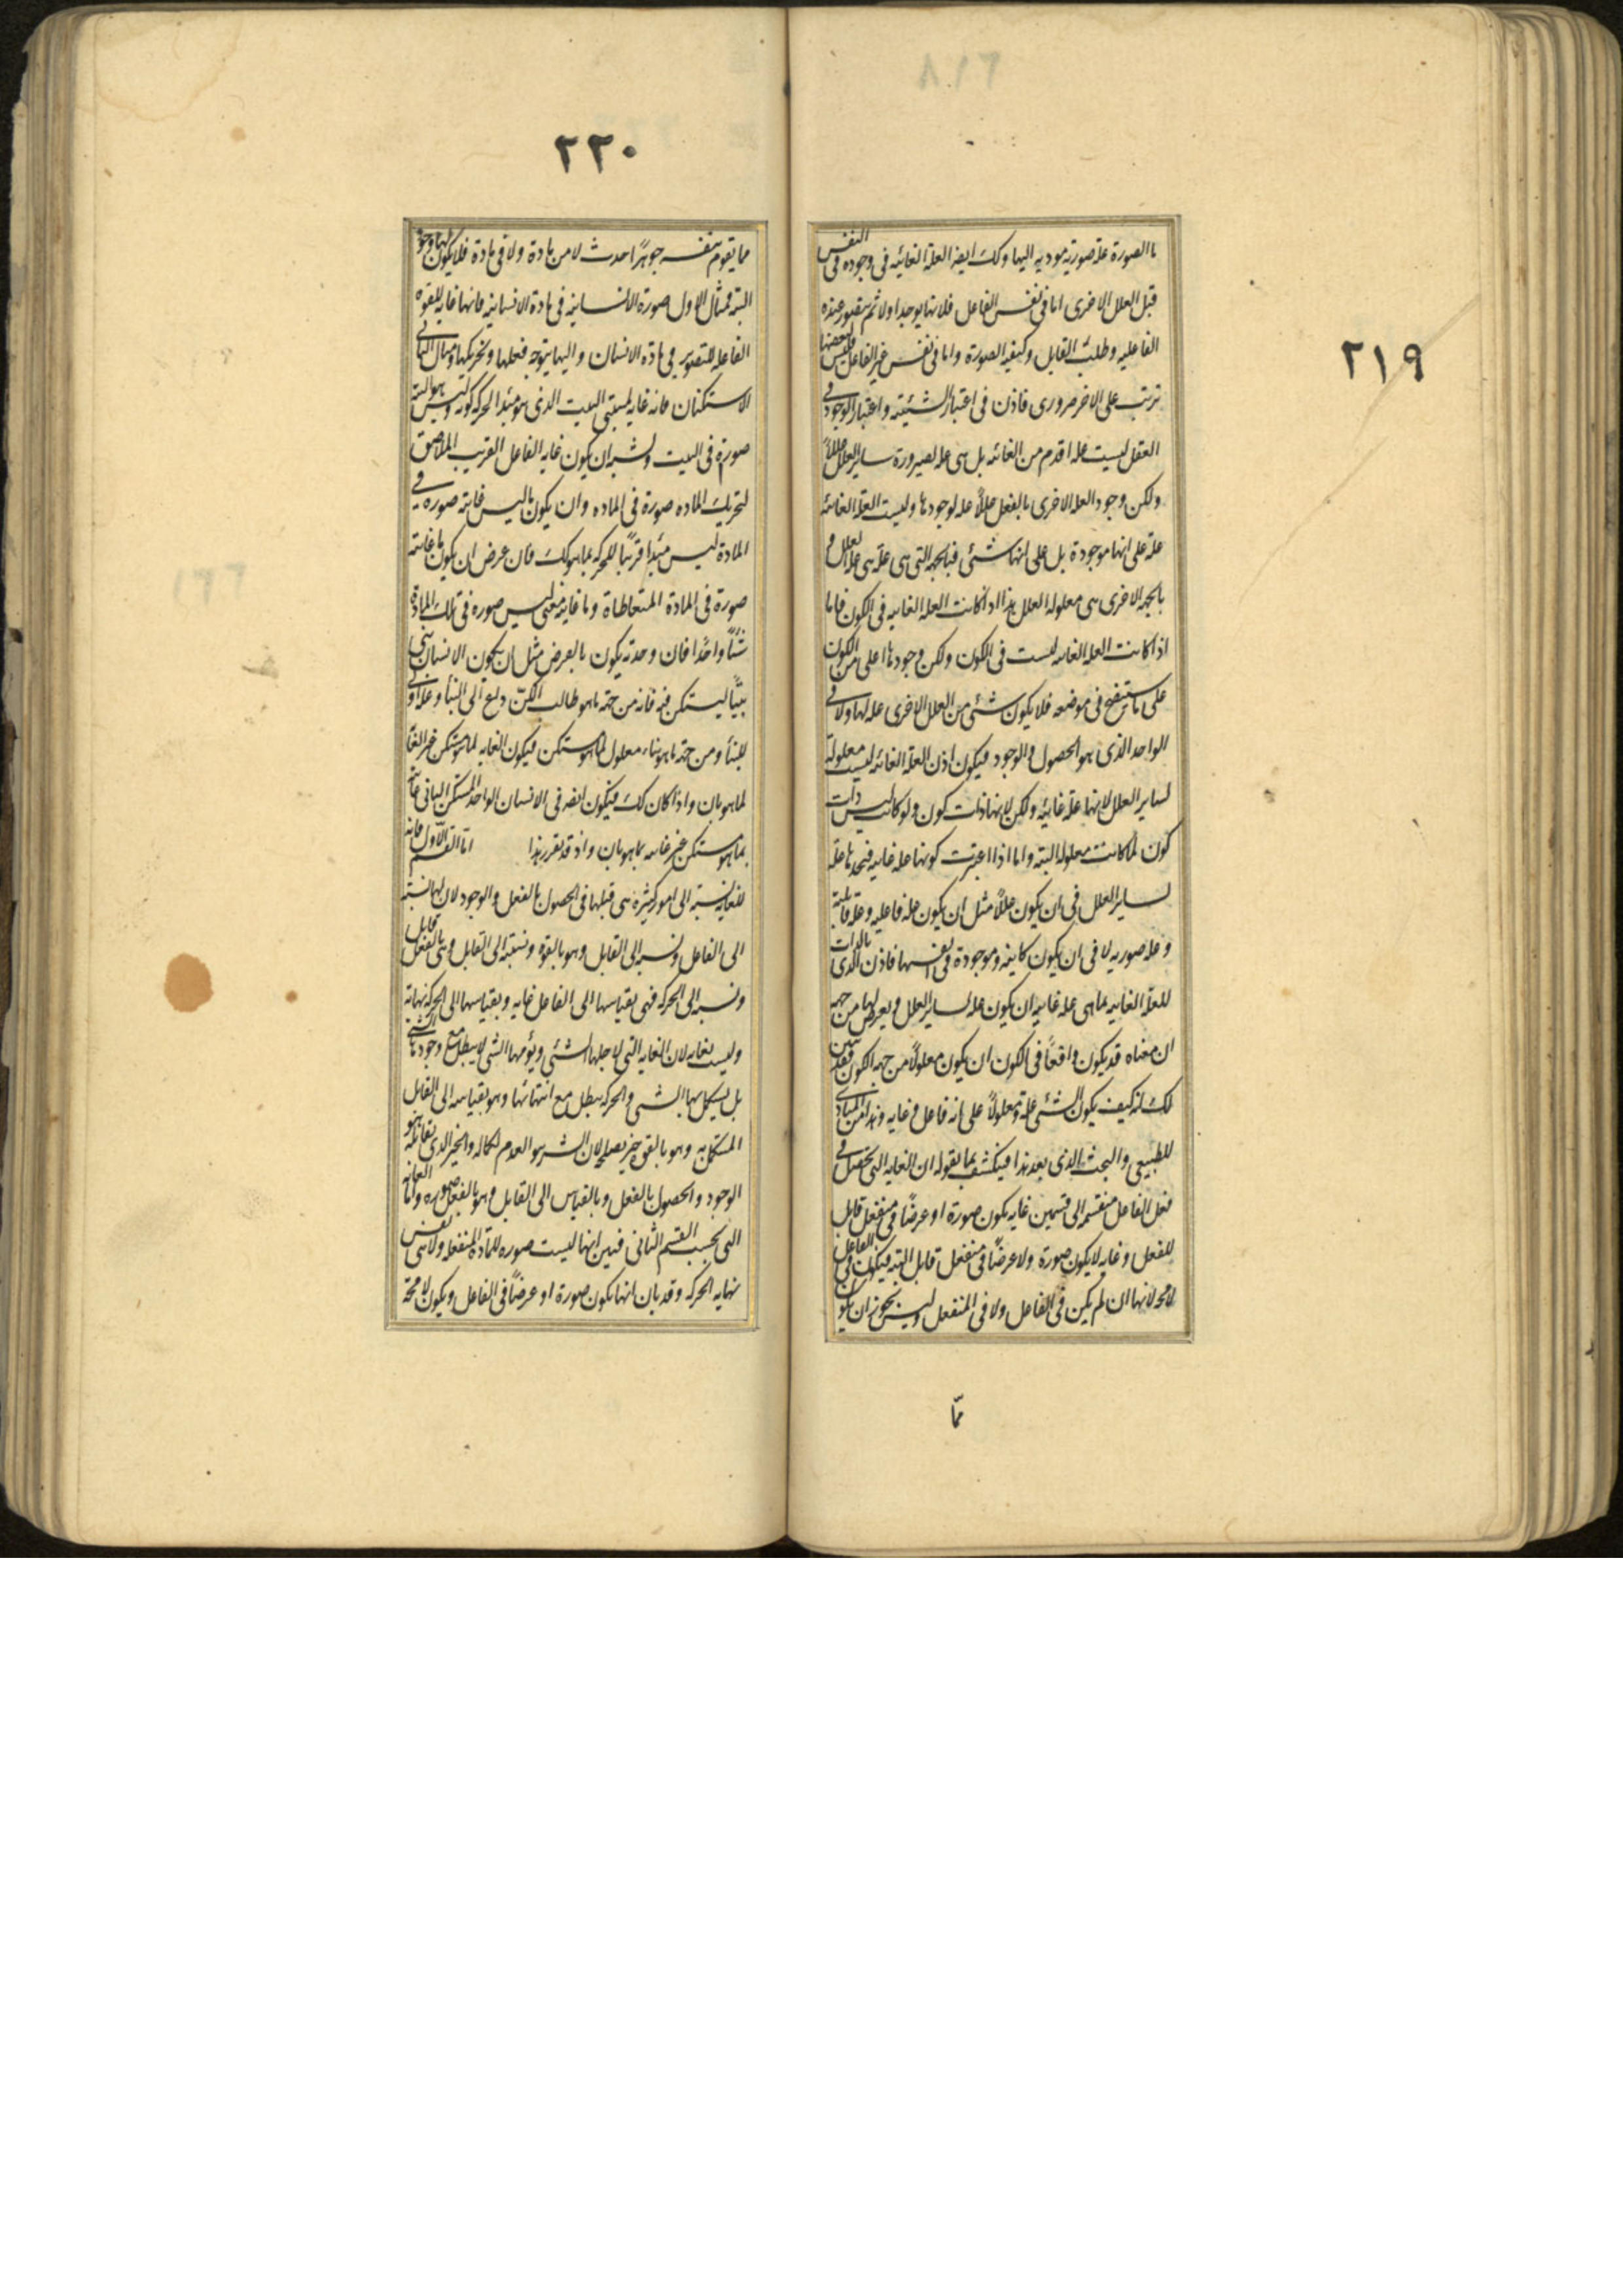 ٢١٩
ما الصورة علة صورية مودية اليها وكك ايضا العلة الغائيه فى وجوده فى النفس
قبل العلل الاخرى اما فى نفس الفاعل فلانها يوجد اولا ثم يتصور عنده
الفاعليه وطلب القابل وكيفيه الصورة واما فى نفس غير الفاعل فليس لبعضها
ترتب على الاخر ضرورى فاذن فى اعتبار الشيئية واعتبار الوجود فى
العقل ليست عله اقدم من الغائيه بل هى عله لصيرورة ساير العلل عللاً
ولكن وجود العلل الاخرى بالفعل عللاً عله لوجودها وليست العلة الغائيه
علة على انها موجودة بل على انها شئى فبالجهه التى هى علة هى علة العلل و
بالجهه الاخرى هى معلوله العلل هذا اذا كانت العله الغائيه فى الكون فاما
اذا كانت العله الغائيه ليست فى الكون ولكن وجودها اعلى من الكون
على ما سيتضح فى موضعه فلا يكون شئى من العلل الاخرى عله لها ولا فى
الواحد الذى هو الحصول والوجود فيكون اذن العلة الغائيه ليست معلولة
لساير العلل لانها علة غائيه ولكن لانها ذات كون ولو كانت ليس ذات
كون لما كانت معلوله البته واما اذا اعتبرت كونها عله غائيه فتجدها علة
لساير العلل فى ان يكون عللاً مثل ان يكون عله فاعليه وعلة قابلية
وعله صوريه لا فى ان يكون كاينه وموجودة فى انفسها فاذن الذى بالذات
للعلة الغاييه بما هى علة غاييه ان يكون عله لساير العلل ويعرض لها من جهه
ان معناه قد يكون واقعاً فى الكون ان يكون معلولاً من جهه الكون فقد تبين
لك انه كيف يكون الشئى علة ومعلولاً على انه فاعل وغايه وهذا من المبادى
للطبيعى والبحث الذى بعد هذا فينكشف بما يقوله ان الغايه التى تحصل فى
فعل الفاعل منقسمه الى قسمين غايه يكون صورة او عرضاً فى منفعل قابل
للفعل وغايه لا يكون صورة ولا عرضاً فى منفعل قابل البته فيكون فى الفاعل
لا محه لانها ان لم يكن فى الفاعل ولا فى المنفعل وليس يجوز ان يكون
ممّا
٢٢٠
مما يقوم بنفسه جوهراً احدث لا من مادة ولا فى مادة فلا يكون لها وجود
البته فمثال الاول صورة الانسانية فى مادة الانسانية فانها غاية للقوه
الفاعله للتصوير فى مادة الانسان واليها يتوجه فعلها وتحريكها ومثال الثانى
الاستكنان فانه غايه لمبتنى البيت الذى هو مبدأ لحركه كونه وليس هو البته
صورة فى البيت ويشبه ان يكون غايه الفاعل القريب الملاصق
لتحريك الماده صورة فى الماده وان يكون ما ليس غايته صورة فى
المادة ليس مبدأ قريباً للحركه بما هو كك فان عرض ان يكون ما غايته
صورة فى المادة المتعاطاة وما غايته معنى ليس صوره فى تلك المادة
شيئاً واحداً فان وحدته يكون بالعرض مثل ان يكون الانسان يبنى
بيتاً ليستكن فيه فانه من جهة ما هو طالب الكن داع الى البناء وعلة اولى
للبناء ومن جهة ما هو بناء معلول لما هو مستكن فيكون الغايه لما هو مستكن غير الغاية
لما هو بان واذا كان كك فيكون ايضا فى الانسان الواحد المستكن البانى غاية
بما هو مستكن غير غايته بما هو بان واذ قد تقرر هذا اما القسم الاول فانه
للغاية نسبة الى امور كثيره هى قبلها فى الحصول بالفعل والوجود لان لها نسبة
الى الفاعل ونسبه الى القابل وهو بالقوه ونسبة الى القابل وهى بالفعل قابل
ونسبه الى الحركه فهى بقياسها الى الفاعل غايه وبقياسها الى الحركه نهاية
وليست بغايه لان الغايه التى لاجلها الشئى ويؤمها الشئى لا يبطل مع وجودها الشئى
بل يستكمل بها الشئ والحركه يبطل مع انتهائها وهو بقياسه الى القابل
المستكمل به وهو بالقوه خير يصلحه لان الشر هو العدم لكماله والخير الذى يقابله هو
الوجود والحصول بالفعل وبالقياس الى القابل وهو بالفعل صوره واما الغايه
التى بحسب القسم الثانى فبين انها ليست صوره للمادة المنفعله ولا هى نفس
نهايه الحركه وقد بان انها يكون صورة او عرضاً فى الفاعل ويكون لا محة